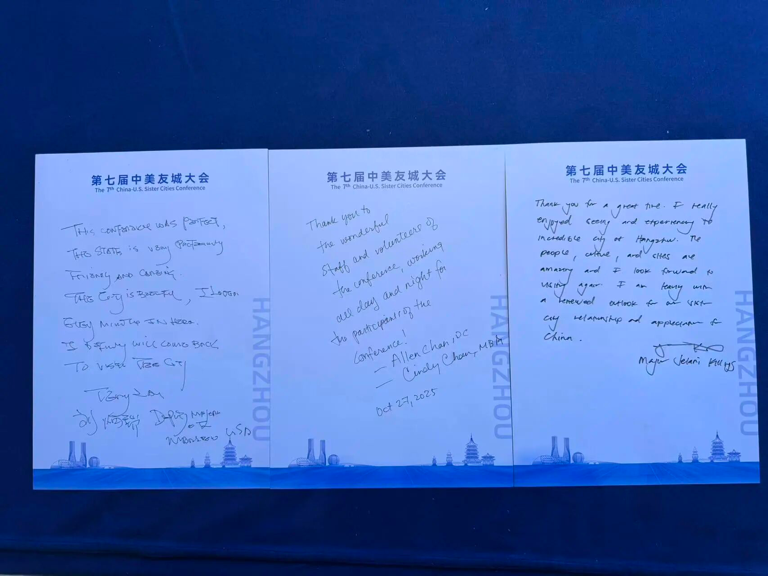 第七届中美友城大会
The 7th China-U.S. Sister Cities Conference
THIS CONFERENCE WAS PERFECT,
THE STAFF IS VERY
FRIENDLY AND CARING.
THIS CITY IS
EVERY MINUTE I'M HERE.
WILL COME BACK
TO VISIT THE CITY
Deputy Mayor
USA
HANGZHOU
第七届中美友城大会
The 7th China-U.S. Sister Cities Conference
Thank you to
the wonderful
Staff and volunteers of
the conference, working
all day and night for
the participants of the
Conference!
— Allen Chan, DC
— Cindy Chan, MBA
Oct 27, 2025
HANGZHOU
第七届中美友城大会
The 7th China-U.S. Sister Cities Conference
Thank you for a great time. I really
enjoyed seeing and experiencing
incredible city of Hangzhou. The
people, culture, and sites are
amazing and I look forward to
visiting again. I am leaving with
a renewed outlook for our sister
city relationship and appreciation for
China.
Mayor
HANGZHOU